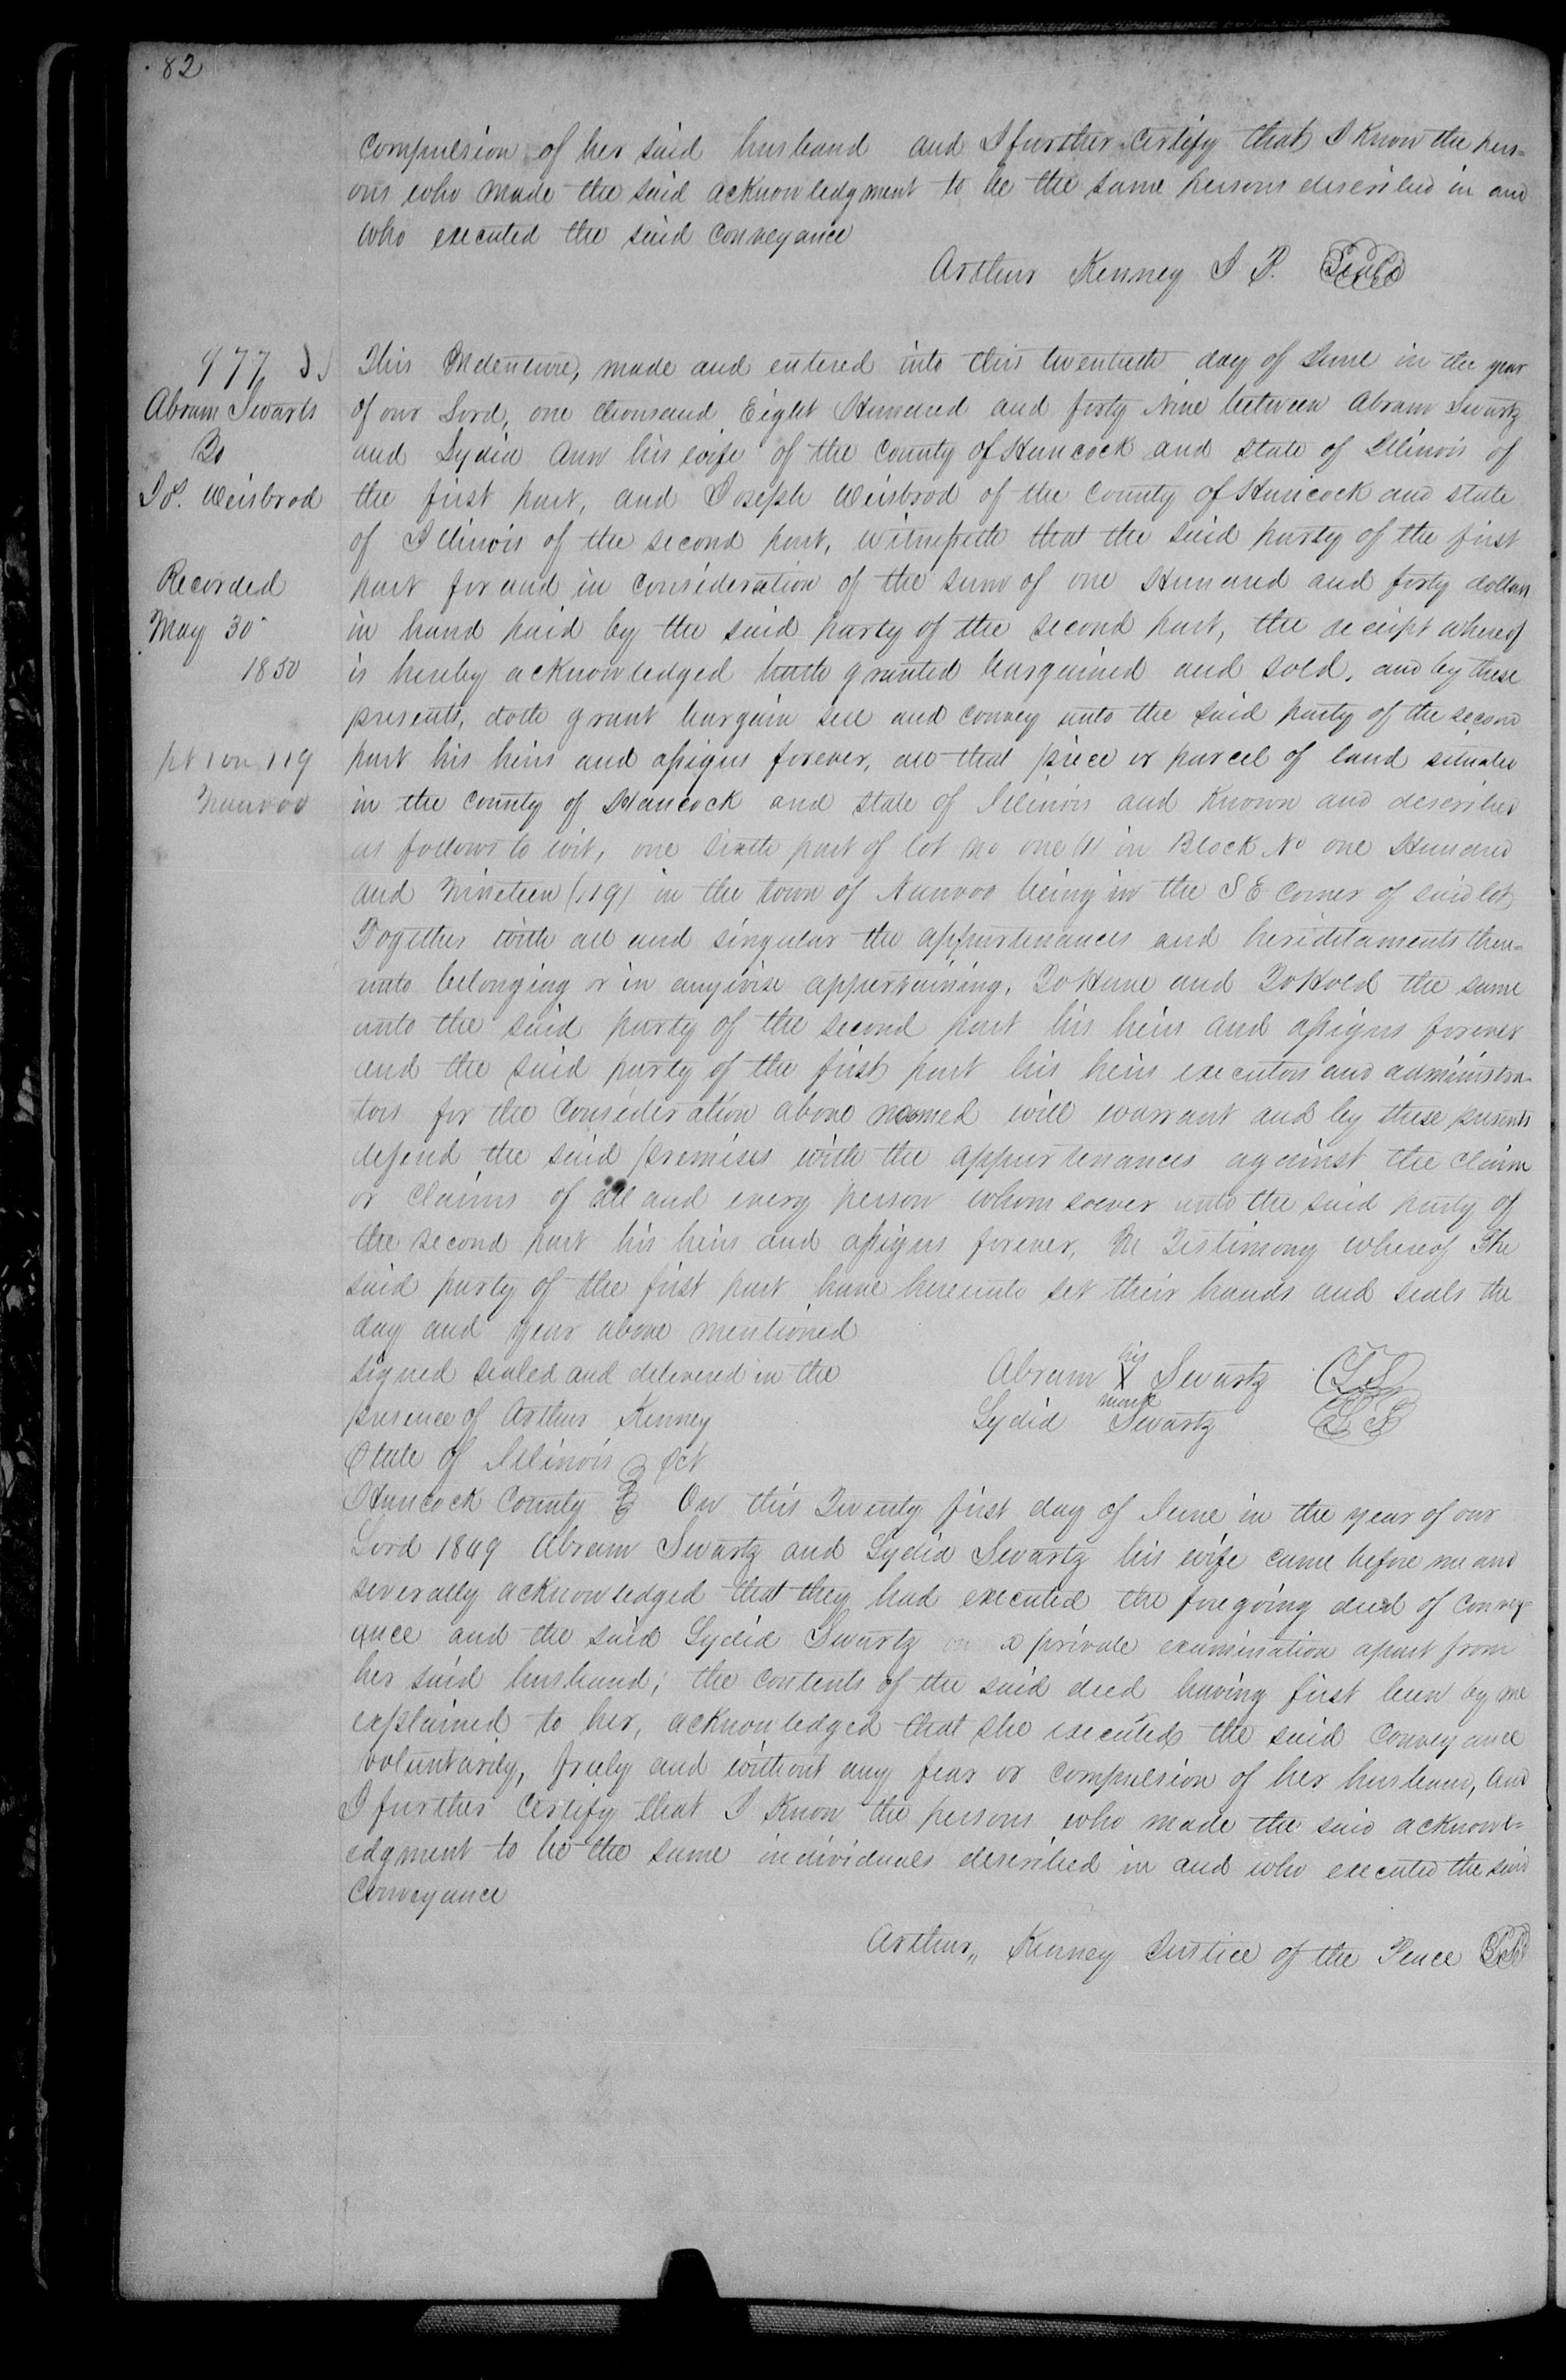 82
compulsion of her said husband and I further certify that I Know the pers=
ons who made the said acknowledgment to be the same persons described in and
who executed the said conveyance
Arthur Kenney J P. Seal
977
Abram Swarts
To
Jos. Weisbrod
Recorded
May 30
1850
pt 1 on 119
Nauvoo
This Indenture, made and entered into this twentieth day of June in the year
of our Lord, one thousand Eight Hundred and forty Nine between Abram Swartz
and Lydia Ann his wife of the County of Hancock and State of Illinois of
the first part, and Joseph Weisbrod of the County of Hancock and state
of Illinois of the second part, witnesseth that the said party of the first
part for and in consideration of the sum of one Hundred and forty dollars
in hand paid by the said party of the second part, the receipt whereof
is hereby acknowledged hath granted bargained and sold, and by these
presents, doth grant bargain sell and convey unto the said party of the second
part his heirs and assigns forever, all that piece or parcel of land situated
in the County of Hancock and state of Illinois and Known and described
as follows to wit, one sixth part of lot no one (1) in Block No one Hundred
and Nineteen (119) in the town of Nauvoo being in the S E corner of said lot
Together with all and singular the appurtenances and heriditaments there=
unto belonging or in anywise appertaining. To Have and To Hold the same
unto the said party of the second part his heirs and assigns forever
and the said party of the first part his heirs executors and administra-
tors for the consideration above named will warrant and by these presents
defend the said premises with the appurtenances against the claim
or claims of all and every person whomsoever unto the said party of
the second part his heirs and assigns forever, In Testimony whereof The
said party of the first part have hereunto set their hands and seals the
day and year above mentioned
signed sealed and delivered in the
presence of Arthur Kenney
Abram his X mark Swartz (L S)
Lydia Swartz (L S)
State of Illinois } Sct
Hancock County } On this Twenty first day of June in the year of our
Lord 1849 Abram Swartz and Lydia Swartz his wife came before me and
severally acknowledged that they had executed the foregoing deed of Convey
ance and the said Lydia Swartz on a private examination apart from
her said husband; the contents of the said deed having first been by me
explained to her, acknowledged that she executed the said Conveyance
voluntarily, freely and without any fear or compulsion of her husband, And
I further certify that I Know the persons who made the said acknowl=
edgment to be the same individuals described in and who executed the said
Conveyance
Arthur,, Kenney Justice of the Peace (L S)